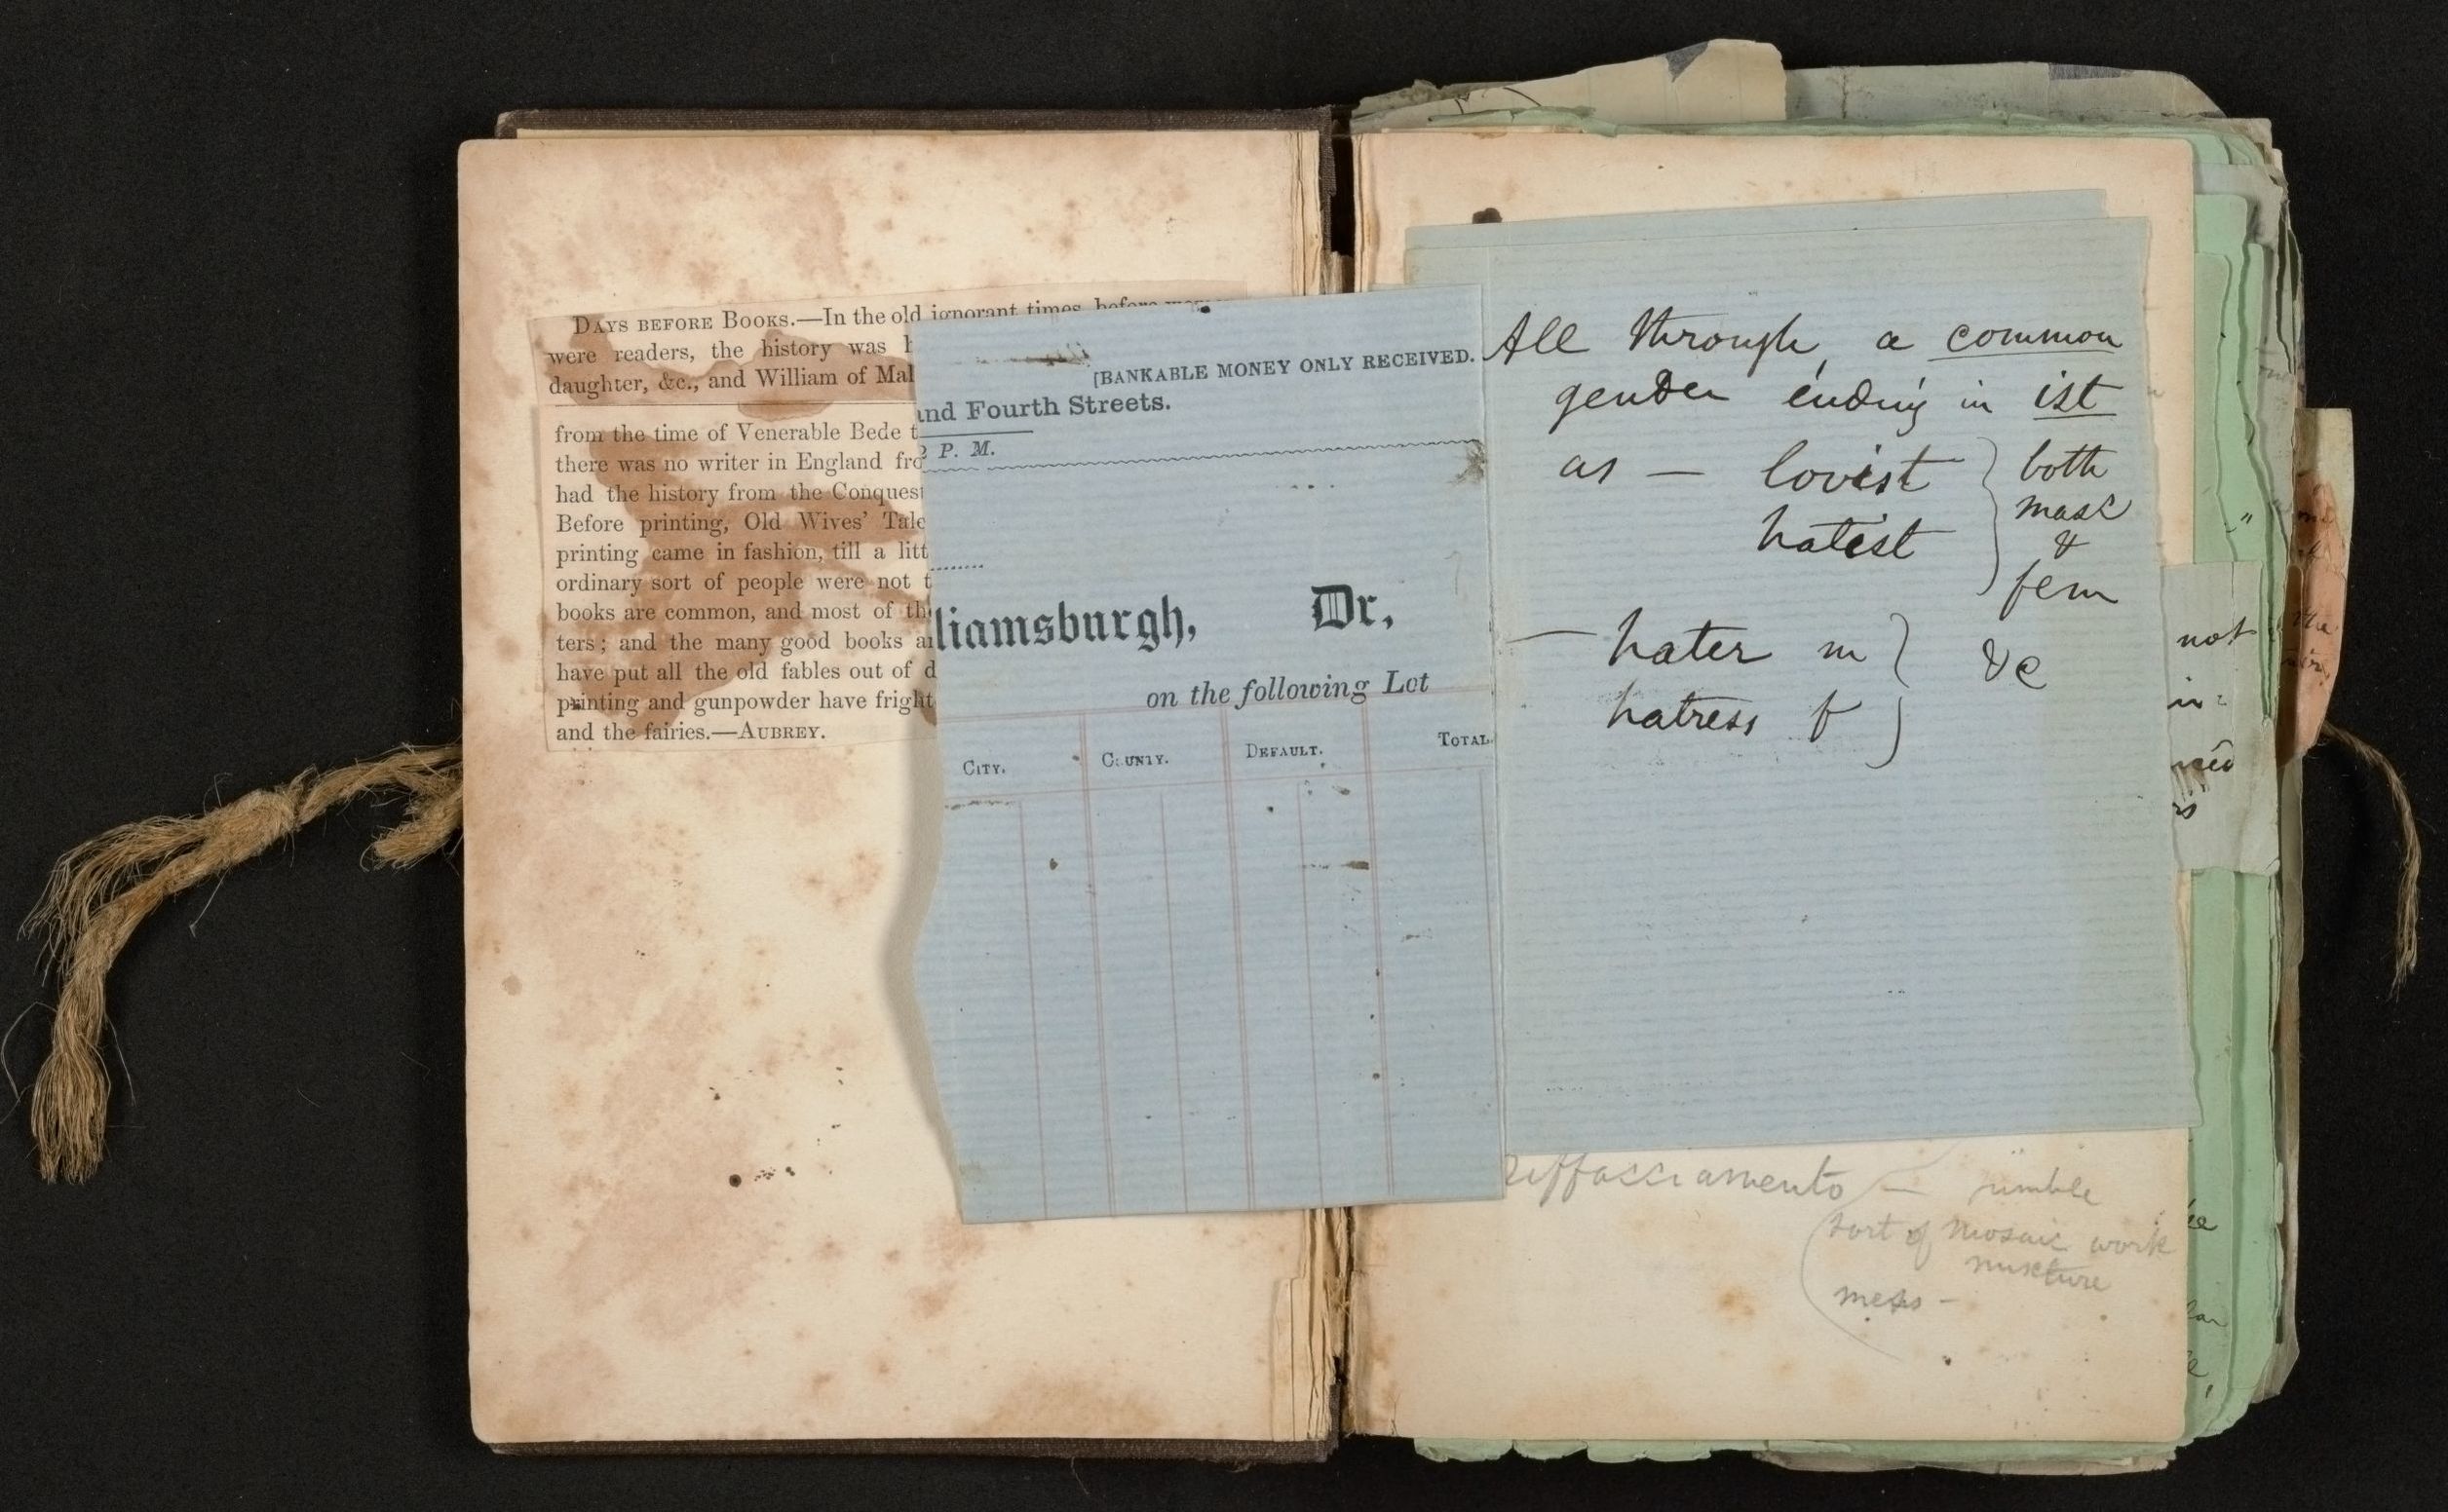 DAYS BEFORE BOOKS.—In the old ignorant times, before
were readers, the history was
daughter, &c., and William of Mal
from the time of Venerable Bede t
there was no writer in England fro
had the history from the Conquest
Before printing, Old Wives' Tale
printing came in fashion, till a litt
ordinary sort of people were not t
books are common, and most of the
ters; and the many good books a
have put all the old fables out of d
printing and gunpowder have fright
and the fairies.—AUBREY.
[BANKABLE MONEY ONLY RECEIVED.
and Fourth Streets.
2 P. M.
liamsburgh, Dr,
on the following Lot
CITY. COUNTY. DEFAULT. TOTAL
All through, a common
gender ending in ist
as — lovist } both
hatist masc
&
fem
— hater m } &c
hatress f
Riffacciamento — jumble
sort of mosaic work
mixture
mess -
not
in: